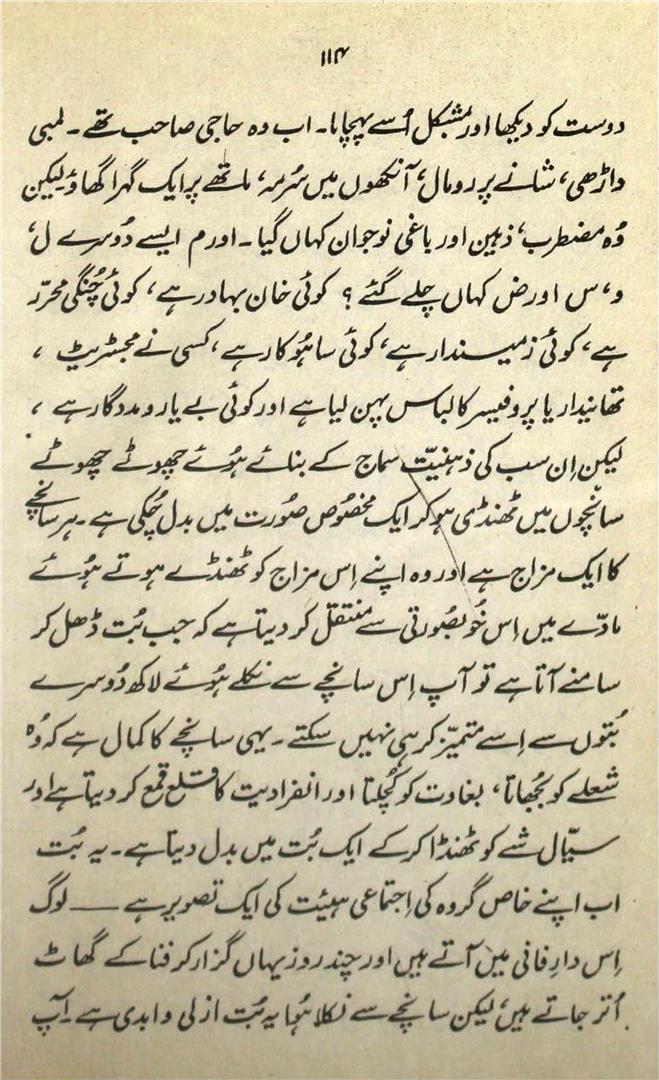 ۱۱۴
دوست کو دیکھا اور بمشکل اُسے پہچانا۔ اب وہ حاجی صاحب تھے۔ لمبی
داڑھی، شانے پر رومال، آنکھوں میں سُرمہ، ماتھے پر ایک گہرا گھاؤ لیکن
وُہ مضطرب، ذہین اور باغی نوجوان کہاں گیا۔ اور م ایسے دُوسرے ل،
و، س اور ض کہاں چلے گئے ؟ کوئی خان بہادر ہے، کوئی چُنگی محرّر
ہے، کوئی زمیندار ہے، کوئی ساہُوکار ہے، کسی نے مجسٹریٹ ،
تھانیدار یا پروفیسر کا لباس پہن لیا ہے اور کوئی بے یار و مددگار ہے ،
لیکن اِن سب کی ذہنیّت سماج کے بنائے ہُوئے چھوٹے چھوٹے
سانچوں میں ٹھنڈی ہو کر ایک مخصُوص صُورت میں بدل چُکی ہے۔ ہر سانچے
کا ایک مزاج ہے اور وہ اپنے اِس مزاج کو ٹھنڈے ہوتے ہُوئے
مادّے میں اِس خُوبصُورتی سے منتقل کر دیتا ہے کہ جب بُت ڈھل کر
سامنے آتا ہے تو آپ اِس سانچے سے نکلے ہُوئے لاکھ دُوسرے
بُتوں سے اِسے متمیّز کر ہی نہیں سکتے۔ یہی سانچے کا کمال ہے کہ وُہ
شعلے کو بُجھاتا، بغاوت کو کُچلتا اور انفرادیت کا قلع قمع کر دیتا ہے اور
سیّال شے کو ٹھنڈا کر کے ایک بُت میں بدل دیتا ہے۔ یہ بُت
اب اپنے خاص گروہ کی اِجتماعی ہیئت کی ایک تصویر ہے —— لوگ
اِس دارِ فانی میں آتے ہیں اور چند روز یہاں گزار کر فنا کے گھاٹ
اُتر جاتے ہیں، لیکن سانچے سے نکلا ہُوا یہ بُت ازلی و ابدی ہے۔ آپ